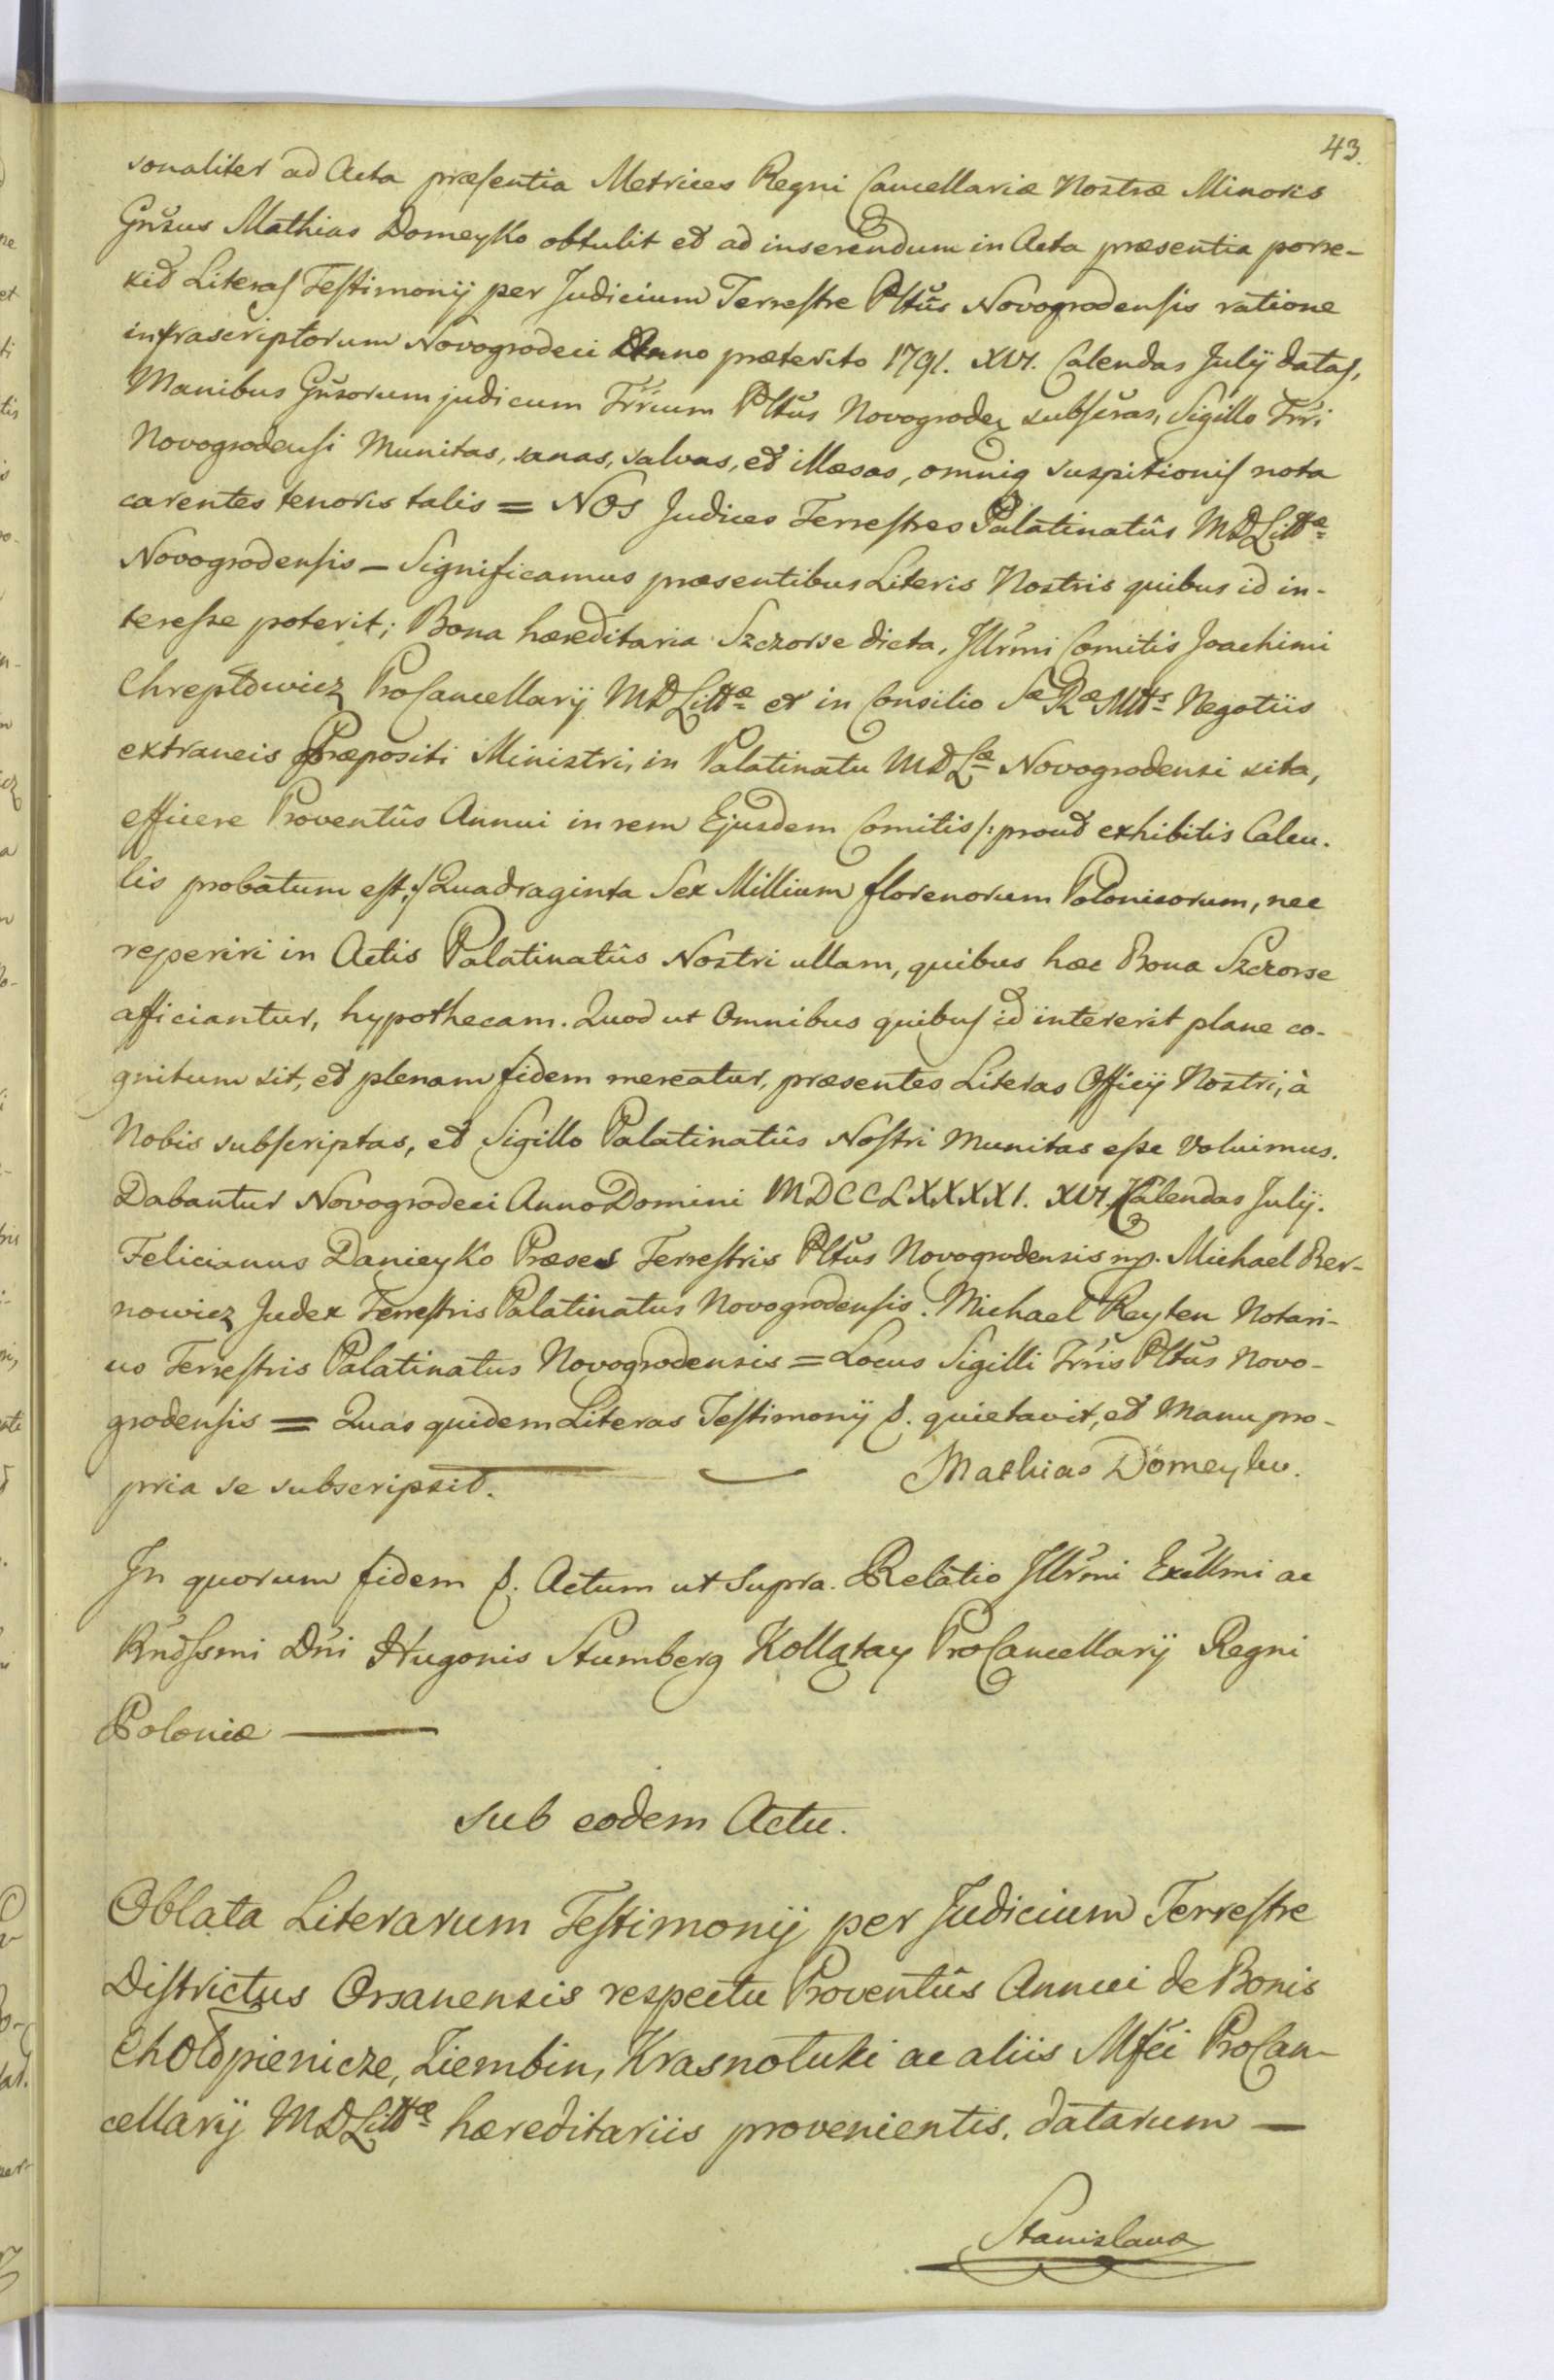 43.
sonaliter ad Acta præsentia Metrices Regni Cancellariæ Nostræ Minoris
Gñsus Mathias Domeyko obtulit et ad inserendum in Acta præsentia porre-
xit Literas Testimonij per Judicium Terrestre Pltũs Novogrodensis ratione
infrascriptorum Novogrodeci Anno præterito 1791. XVI. Calendas Julij datas,
Manibus Gñsorum judicum Trrium Pltũs Novogroden subscras, Sigillo Trri
Novogrodensi Munitas, sanas, salvas, et illæsas, omniq suspitionis nota
carentes tenoris talis = NOS Judices Terrestres Palatinatûs MDLittæ
Novogrodensis – Significamus præsentibus Literis Nostris quibus id in-
teresse poterit; Bona hæreditaria Szczorse dicta, Jllrmi Comitis Joachimi
Chreptowicz ProCancellarij MDLittæ et in Consilio Sæ Ræ Mttis Negotiis
extraneis Præpositi Ministri, in Palatinatu MDLæ Novogrodensi sita,
efficere Proventûs Annui in rem Ejusdem Comitis /: prout exhibitis Calcu-
lis probatum est :/ Quadraginta Sex Millium florenorum Polonicorum, nec
reperiri in Actis Palatinatûs Nostri ullam, quibus hæc Bona Szczorse
afficiantur, hypothecam. Quod ut Omnibus quibus id intererit plane co-
gnitum sit, et plenam fidem mereatur, præsentes Literas Officij Nostri, à
Nobis subscriptas, et Sigillo Palatinatûs Nostri Munitas esse Voluimus.
Dabantur Novogrodeci Anno Domini MDCCLXXXXI. XVI. Kalendas Julij.
Felicianus Danieyko Præses Terrestris Pltũs Novogrodensis mp. Michael Ber-
nowicz Judex Terrestris Palatinatus Novogrodensis. Michael Reyten Notari-
us Terrestris Palatinatus Novogrodensis = Locus Sigilli Trris Pltũs Novo-
grodensis = Quas quidem Literas Testimonij &. quietavit, et Manu pro-
pria se subscripsit. Mathias Domeyko.
Jn quorum fidem &. Actum ut Supra. Relatio Jllrmi Excllmi ac
Rndssmi Dni Hugonis Stumberg Kollątay ProCancellarij Regni
Poloniæ
Sub eodem Actu.
Oblata Literarum Testimonij per Judicium Terrestre
Districtus Orsanensis respectu Proventûs Annui de Bonis
Chołopienicze, Ziembin, Krasnołuki ac aliis Mfci ProCan-
cellarij MDLittæ hæreditariis provenientis, datarum —
Stanislaus